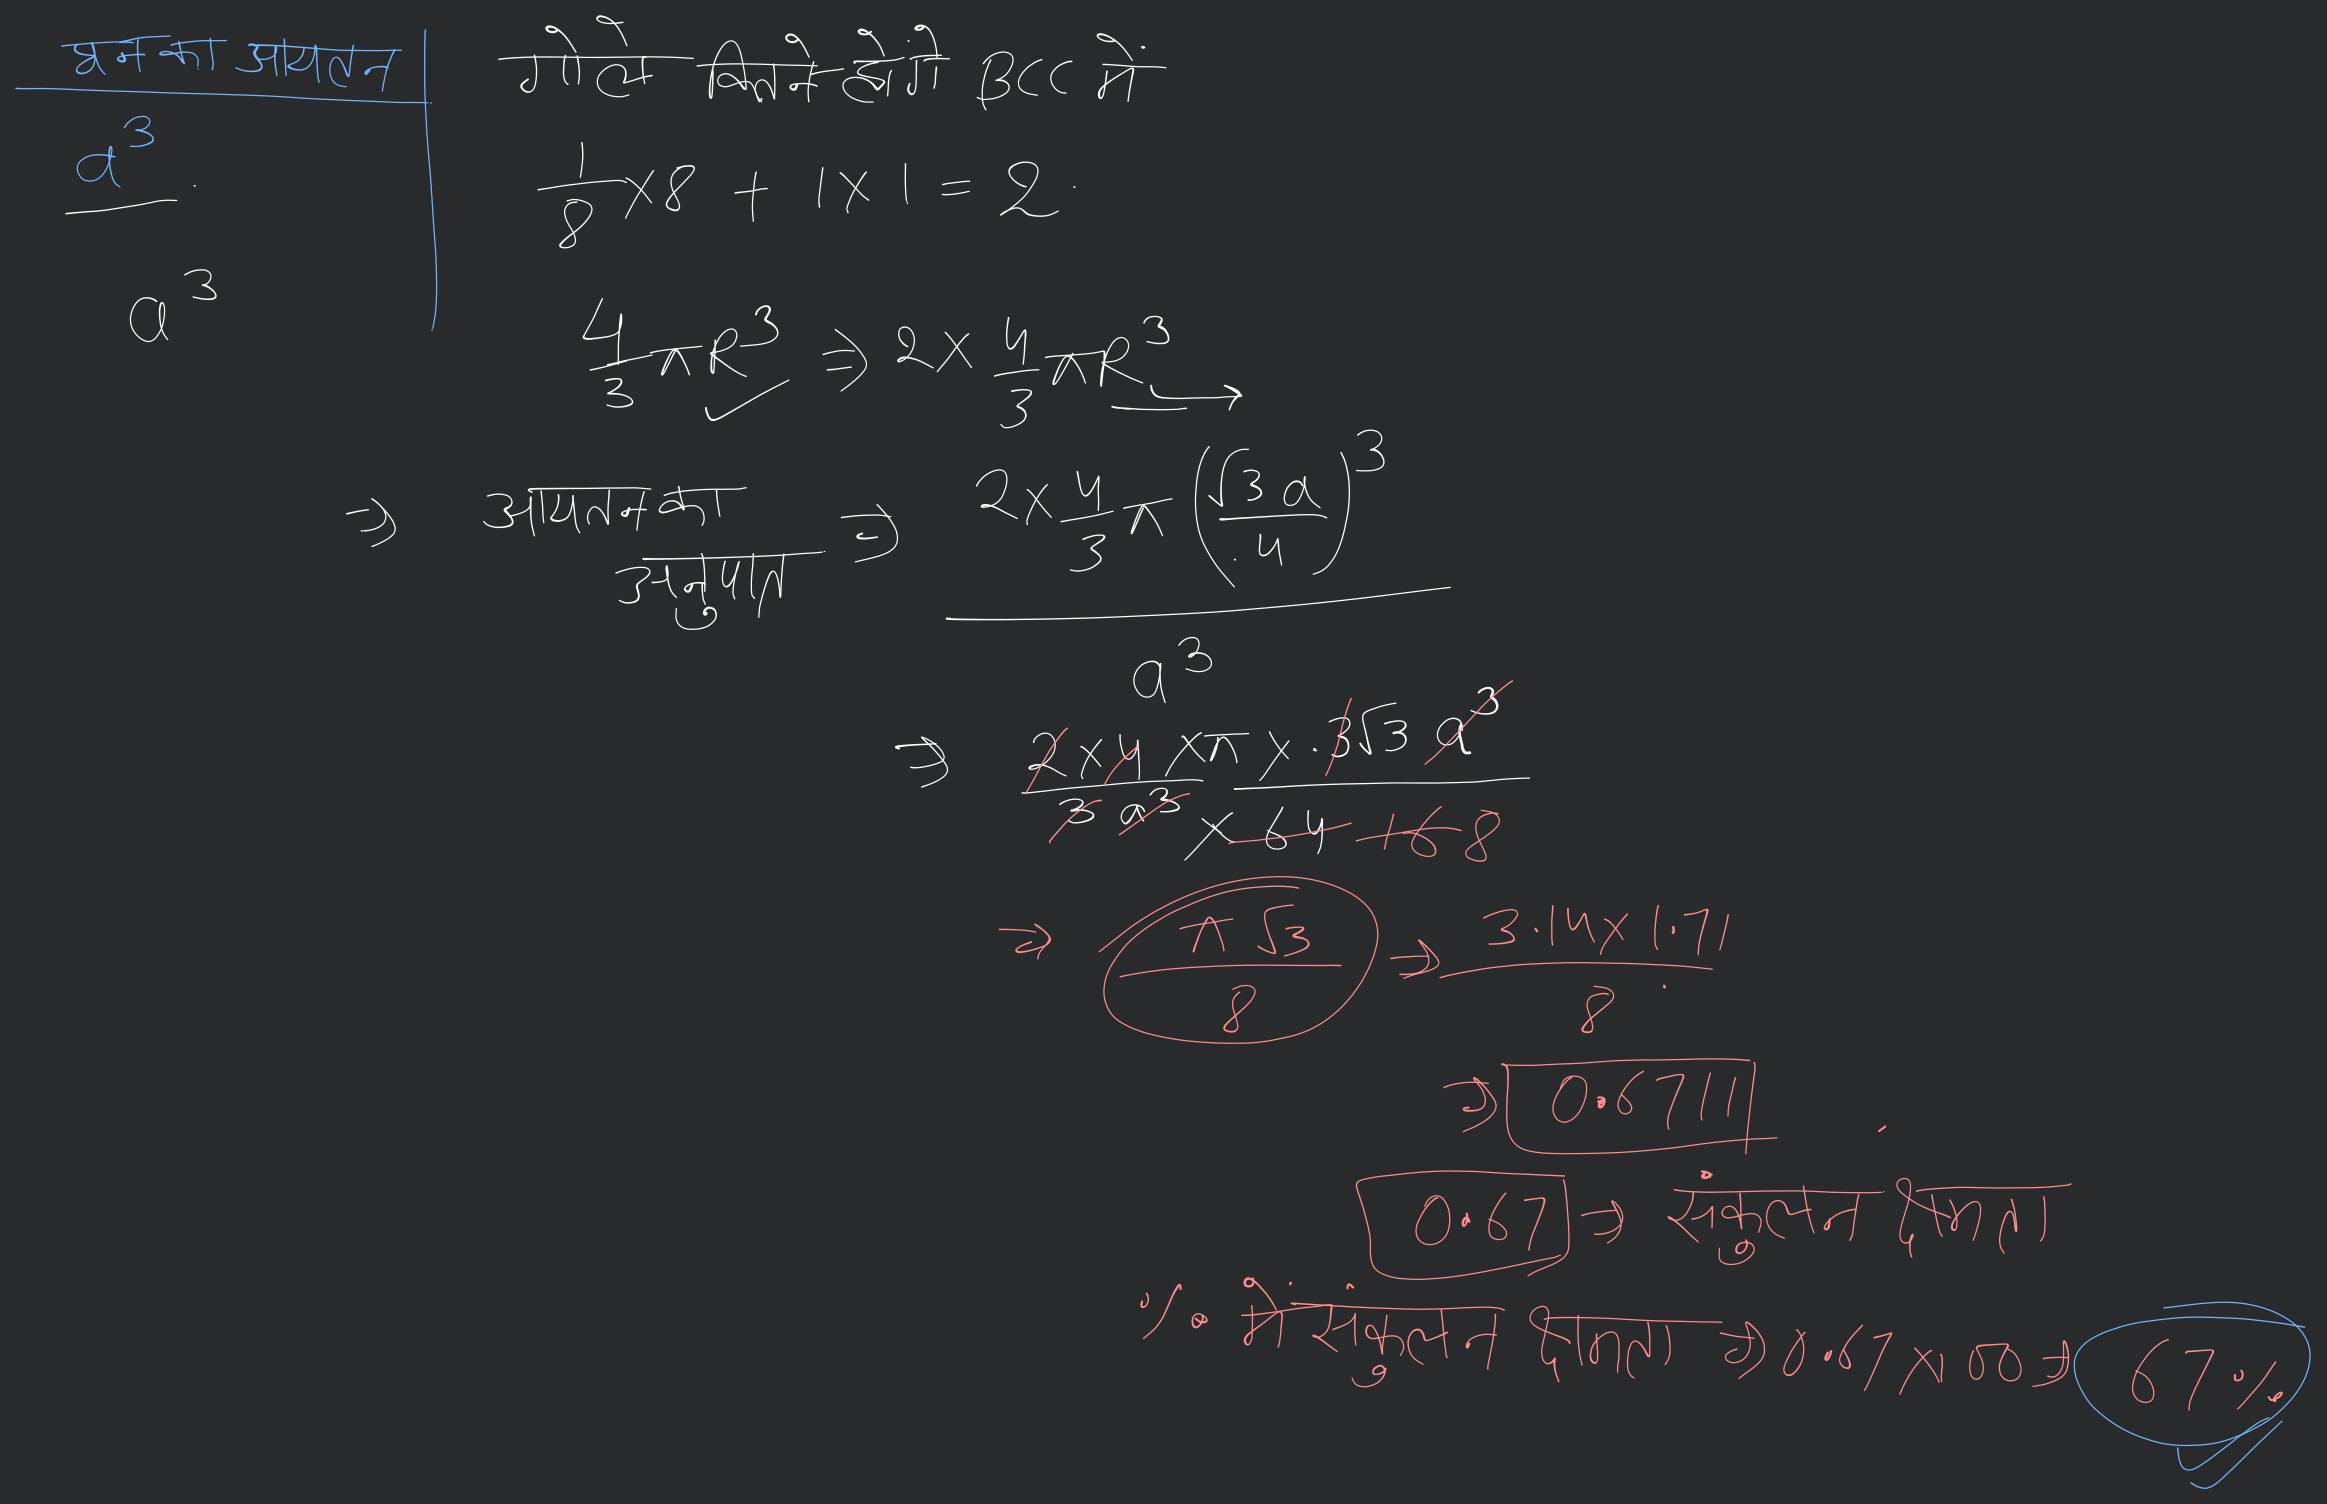 घन का आयतन
a³
a³
गोले कितने होंगे BCC में
1/8 × 8 + 1 × 1 = 2
4/3 πR³ ⇒ 2 × 4/3 πR³
⇒ आयतन का अनुपात ⇒ 2 × 4/3 π (√3 a / 4)³ / a³
⇒ 2 × 4 × π × 3√3 a³ / 3 a³ × 64 16 8
⇒ π √3 / 8 ⇒ 3.14 × 1.71 / 8
⇒ 0.6711
0.67 ⇒ संकुलन क्षमता
% में संकुलन क्षमता ⇒ 0.67 × 100 ⇒ 67%